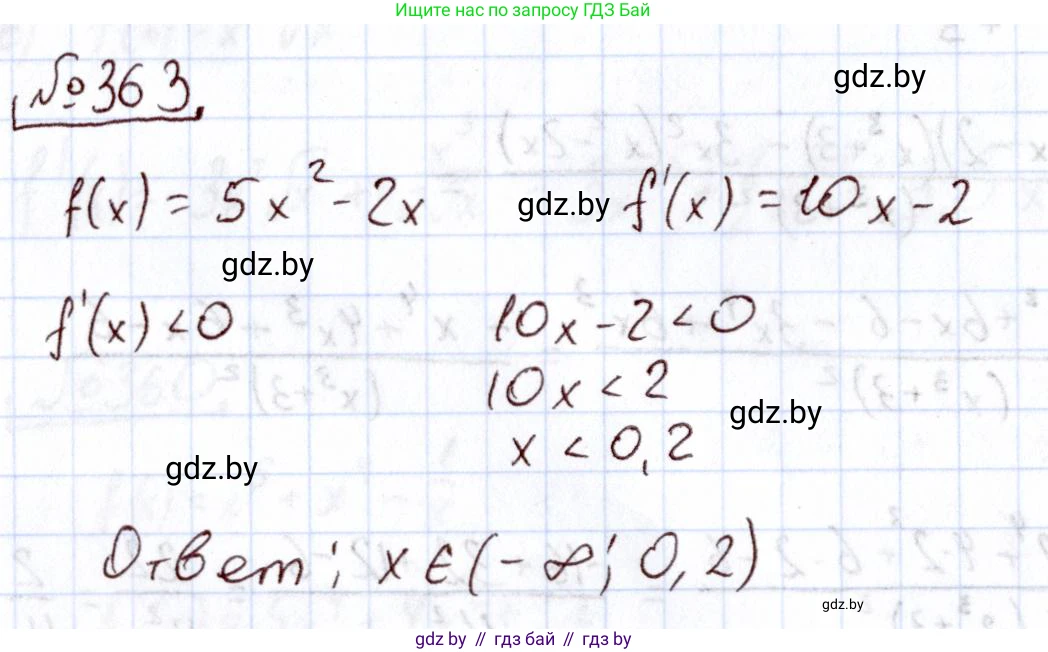 Ищите нас по запросу ГДЗ Бай
№363.
gdz.by
f(x) = 5x² - 2x gdz.by f'(x) = 10x - 2
gdz.by
f'(x) < 0 10x - 2 < 0
10x < 2
gdz.by
x < 0,2
gdz.by
Ответ: x ∈ (-∞; 0,2)
gdz.by
gdz.by // гдз бай // гдз by